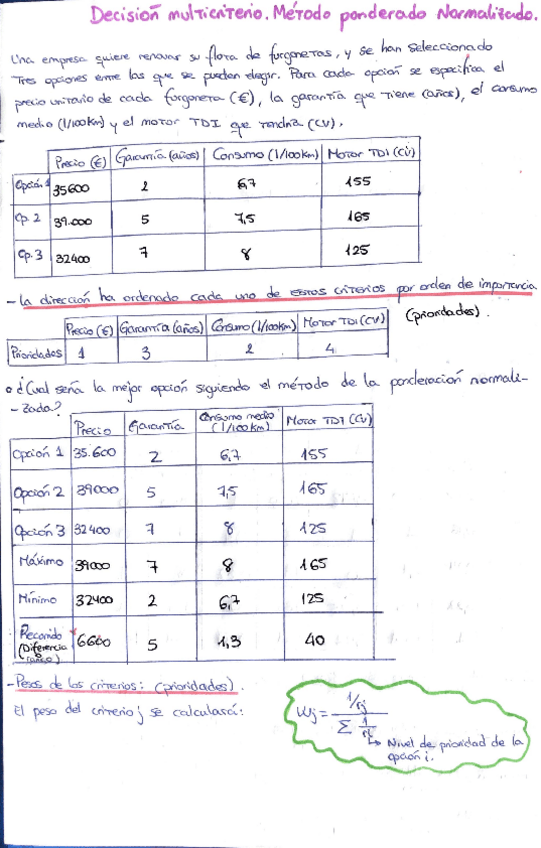 Decisión multicriterio. Método ponderado Normalizado.
Una empresa quiere renovar su flota de furgonetas, y se han seleccionado
tres opciones entre las que se pueden elegir. Para cada opción se especifica el
precio unitario de cada furgoneta (€), la garantía que tiene (años), el consumo
medio (l/100km) y el motor TDI que tendría (CV).
Precio (€) Garantía (años) Consumo (l/100km) Motor TDI (CV)
Opción 1 35600 2 6,7 155
Op. 2 39.000 5 7,5 165
Op. 3 32400 7 8 125
- La dirección ha ordenado cada uno de estos criterios por orden de importancia
(prioridades).
Precio (€) Garantía (años) Consumo (l/100km) Motor TDI (CV)
Prioridades 1 3 2 4
¿Cual sería la mejor opción siguiendo el método de la ponderación normali-
- zada?
Precio Garantía Consumo medio (l/100km) Motor TDI (CV)
Opción 1 35.600 2 6,7 155
Opción 2 39000 5 7,5 165
Opción 3 32400 7 8 125
Máximo 39000 7 8 165
Mínimo 32400 2 6,7 125
Recorrido
(Diferencia
6600 5 1,3 40
- Pesos de los criterios: (prioridades).
El peso del criterio j se calculará:
Wj = 1/rj / Σ 1/ri
Nivel de prioridad de la
opción i.